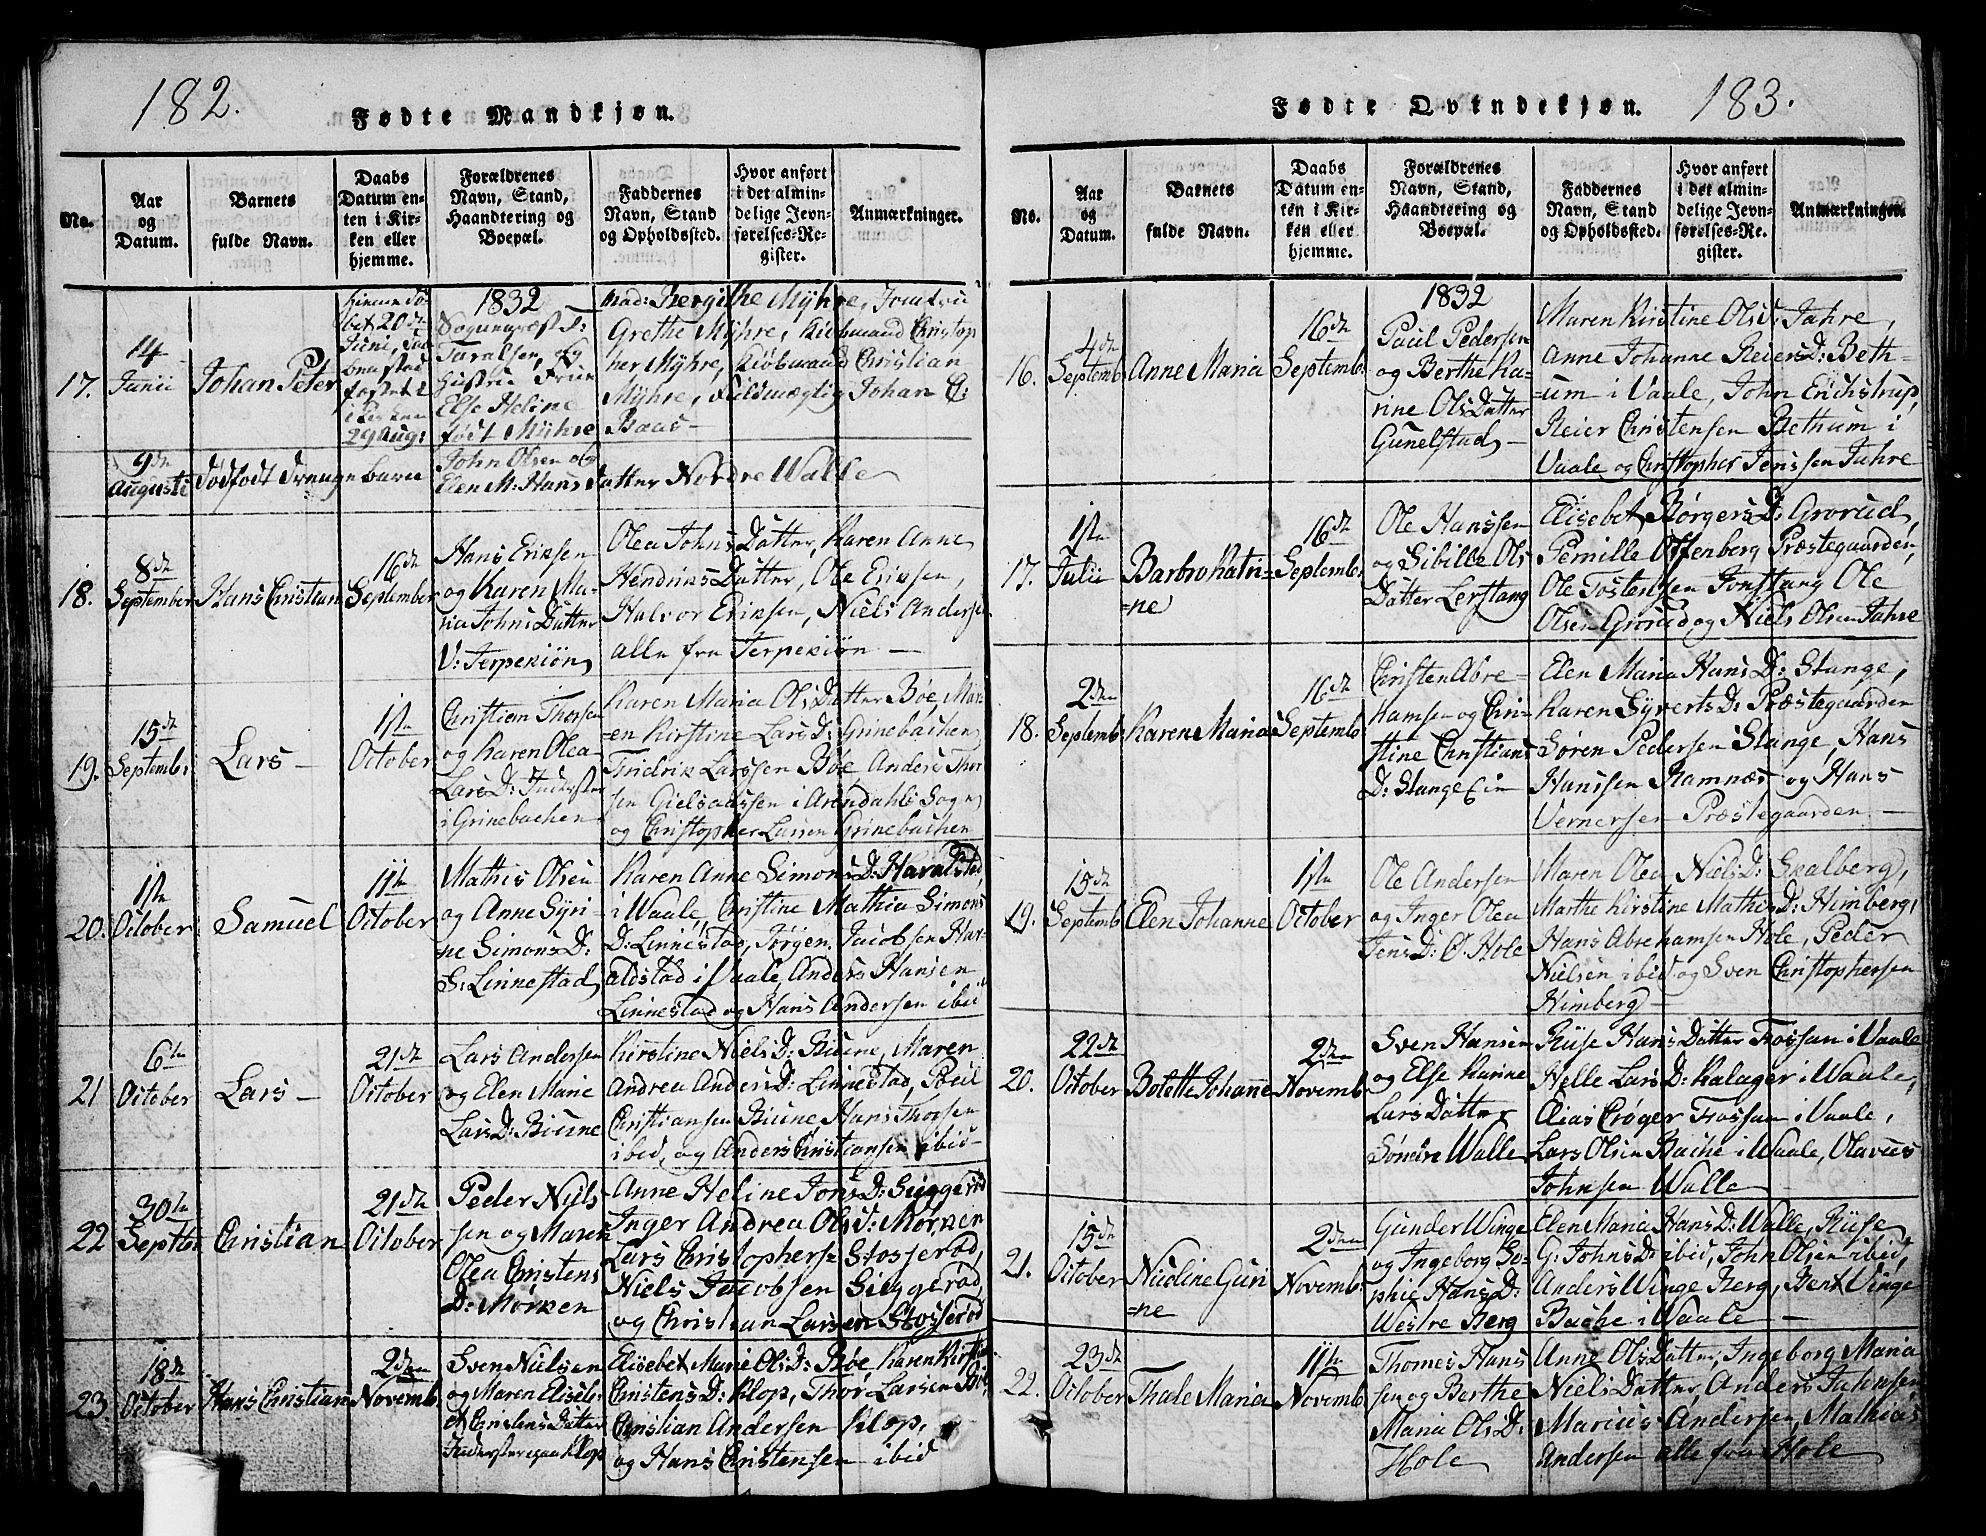 182.
Fødte Mandkjøn.
No.
Aar
og
Datum.
Barnets
fulde Navn.
Daabs
Datum en-
ten i Kir-
ken eller
hjemme.
Forældrenes
Navn, Stand,
Haandtering og
Boepæl.
Faddernes
Navn, Stand
og Opholdssted.
Hvor anført
i det almin-
delige Jevn-
førelses-Re-
gister.
Anmærkninger.
1832
17.
14
Junii
Johan Peter
hjemme dø-
bet 20de
Juni,
i Kirken
29 Aug:
Sognepræst
og
Hustrue
Else Heline
født Myhre
Mad: Bergithe Myhre,
Grethe Myhre, Kiøbmand Christop
her Myhre, Kiøbmand Christian
Myhre, Fuldmægtig Johan C:
Baas-
9de
Augusti
dødfødt Drengebarn
John Olsen og
Elen M: Hans Datter Nordre Walle
18.
8de
September
Hans Christian
16de
September
Hans Eriksen
og Karen Ma-
ria Johns Datter
V: Jerpekiøn
Olea Johns Datter, Karen Anne
Hendriks Datter, Ole Eriksen,
Halvor Eriksen, Niels Andersen
alle fra Jerpekiøn —
19.
15de
Septembr
Lars —
1ste
October
Christian Thorsen
og Karen Olea
Lars D:
i Grinebachen
Karen Maria Ols Datter Bøe, Mar-
en Kirstine Lars D: Grinebachen
Fridrik Larssen Bøe, Anders Thor
sen i Arendahls Sogn
og Christopher Larsen Grinebachen
20.
1ste
October
Samuel
11te
October
Mathis Olsen
og Anne Syri-
ne Simons D:
S: Linnestad
Karen Anne Simons D: Haralstad,
i Vaale, Christine Mathia Simons
D: Linnestad, Jørgen Jacobsen Har-
aldstad i Vaale, Anders Hansen
Linnestad og Hans Andersen ibid
21
6te
October
Lars —
21de
October
Lars Andersen
og Elen Marie
Lars D: Biune
Kirstine Niels D: Biune, Maren
Andrea Anders D: Linnestad, Poul
Christiansen Biune Hans Thorsen
ibid, og Anders Christiansen ibid-
22
30te
Septbr
Christian
21de
October
Peder Niels
sen og Maren
Olea Christens
D: Mørken
Anne Heline Jons D: Siggerød
Inger Andrea Ols D: Mørken
Lars Christopherse Stosserød,
Niels Jacobsen Siggerød,
og Christian Larsen Stosserød
23.
18de
October
Hans Christian
2den
Novemb:
Sven Nielsen
og Maren Elise-
et Christens Datter
Klop
Elisebet Marie Ols D: Bøe, Karen
Christens D: Klop, Thor Larsen Bøe,
Christian Andersen Klop,
og Hans Christensen ibid
183.
Fødte Qvindekjøn.
No.
Aar
og
Datum.
Barnets
fulde Navn.
Daabs
Datum en-
ten i Kir-
ken eller
hjemme.
Forældrenes
Navn, Stand,
Haandtering og
Boepæl.
Faddernes
Navn, Stand
og Opholdssted.
Hvor anført
i det almin-
delige Jevn-
førelses-Re-
gister.
Anmærkninger.
1832
16.
4de
Septemb
Anne Maria
16de
Septemb:
Paul Pedersen
og Berthe Ka-
rine Ols Datter
Gunelstad —
Maren Kirstine Ols D: Jahre,
Anne Johanne Reiers D: Beth-
=um i Vaale, John Erichstrup,
Reier Christensen Bethum i
Vaale og Christopher Jenssen Jahre
17.
1ste
Julii
Barbro Katri-
=ne
16de
Septemb:
Ole Hanssen
og Sibille Ols
Datter Lerstang
Elisebet Børgers D: Grorud,
Pernille Offenberg Præstegaarden,
Ole Tostensen Jonstang Ole
Olsen Grorud og Niels Olsen Jahre
18.
2den
Septemb:
Karen Maria
16de
Septemb:
Christen Abre-
hamsen og Chri-
stine Christians
D: Stange Eie
Elen Maria Hans D: Stange,
Karen Syverts D: Præstegaarden
Søren Pedersen Stange, Hans
Hanssen Ramnæs og Hans
Vernersen Præstegaarden —
19.
15de
Septemb
Elen Johanne
1ste
October
Ole Andersen
og Inger Olea
Jens D: Ø. Hole
Maren Olea Niels D: Skalberg,
Marthe Kirstine Mathis D: Himberg,
Hans Abrehamsen Hole, Peder
Nielsen ibid og Sven Christophersen
Himberg —
20.
22de
October
Botette Johanne
2den
Novemb
Sven Hansen
og Else Karine
Lars Datter
Søndre Walle
Riise Hans Datter Fossan i Vaale
Helle Lars D: Kalager i Vaale,
Elias Crøger Fossan i Vaale,
Lars Olsen Bache i Vaale, Olavus
Johnsen Walle —
21.
15de
October
Nicoline Guri
=ne
2den
Novemb:
Gunder Winge
og Ingeborg So-
phie Hans D:
Westre Berg
Elen Maria Hans D: Walle, Riise
G: Johns D: ibid, John Olsen ibid,
Anders Winge Berg, Bent Vinge
Bache i Vaale —
22.
23de
October
Thale Maria
11te
Novemb
Thomes Hans
sen og Berthe
Maria Ols D:
Hole
Anne Ols Datter, Ingeborg Maria
Niels Datter, Anders Johnsen,
Marius Andersen, Mathias
Andersen alle fra Hole